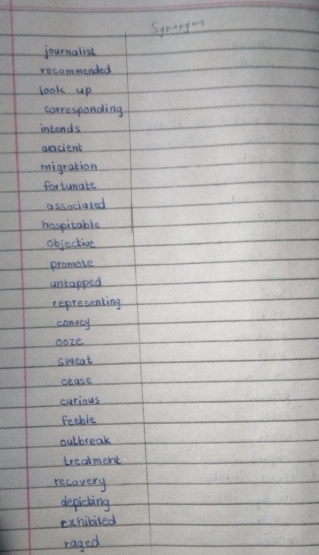 Synonyms
journalist
recommended
look up
corresponding
intends
ancient
migration
fortunate
associated
hospitable
objective
promote
untapped
representing
convey
ooze
sweat
cease
curious
feeble
outbreak
treatment
recovery
depicting
exhibited
raged